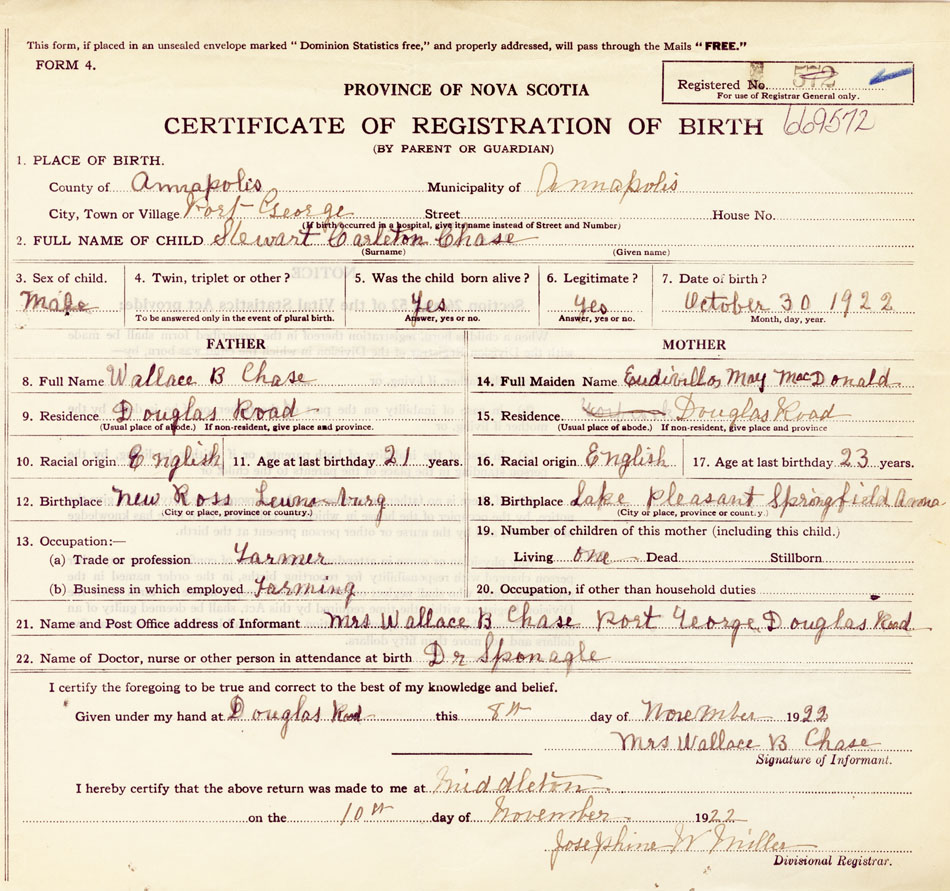 This form, if placed in an unsealed envelope marked "Dominion Statistics free," and properly addressed, will pass through the Mails "FREE."
FORM 4.
Registered No. 572
For use of Registrar General only.
PROVINCE OF NOVA SCOTIA
CERTIFICATE OF REGISTRATION OF BIRTH 669572
(BY PARENT OR GUARDIAN)
1. PLACE OF BIRTH.
County of Annapolis Municipality of Annapolis
City, Town or Village Port George Street House No.
(If birth occurred in a hospital, give its name instead of Street and Number)
2. FULL NAME OF CHILD Stewart Carleton Chase
(Surname) (Given name)
3. Sex of child. 4. Twin, triplet or other? 5. Was the child born alive? 6. Legitimate? 7. Date of birth?
Male Yes Yes October 30 1922
To be answered only in the event of plural birth. Answer, yes or no. Answer, yes or no. Month, day, year.
FATHER MOTHER
8. Full Name Wallace B Chase 14. Full Maiden Name May MacDonald
9. Residence Douglas Road 15. Residence. Douglas Road
(Usual place of abode.) If non-resident, give place and province (Usual place of abode.) If non-resident, give place and province
10. Racial origin English 11. Age at last birthday 21 years. 16. Racial origin English 17. Age at last birthday 23 years.
12. Birthplace New Ross 18. Birthplace Lake Pleasant Springfield Anna
(City or place, province or country.) (City or place, province or country.)
13. Occupation:— 19. Number of children of this mother (including this child.)
(a) Trade or profession Farmer Living one Dead Stillborn
(b) Business in which employed Farming 20. Occupation, if other than household duties
21. Name and Post Office address of Informant Mrs Wallace B Chase Port George Douglas Road
22. Name of Doctor, nurse or other person in attendance at birth Dr Sponagle
I certify the foregoing to be true and correct to the best of my knowledge and belief.
Given under my hand at Douglas Rod this 8th day of November 1922
Mrs Wallace B Chase
Signature of Informant.
I hereby certify that the above return was made to me at Middleton
on the 10th day of November 1922
Josephine W Miller
Divisional Registrar.